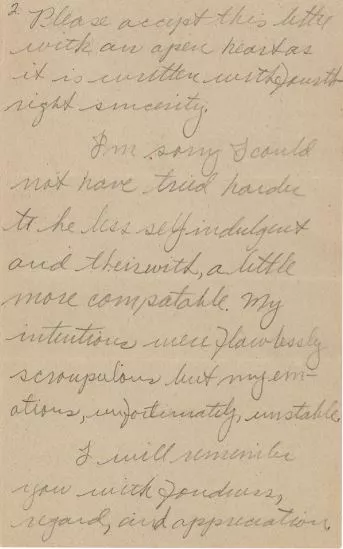 2.
Please accept this letter
with an open heart as
it is written with fourth-
right sincerity.
I'm sorry I could
not have tried harder
to be less self indulgent
and therewith, a little
more compatable. My
intentions were flawlessly
scroupulous but my em-
otions, unfortunately, unstable.
I will remember
you with fondness,
regard, and appreciation.